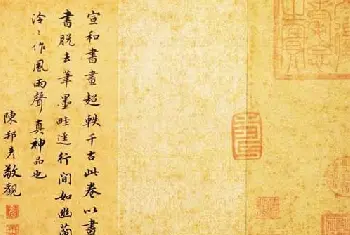 宣和書畫超軼千古此卷以畫
書脫去筆墨畦逕行間如幽蘭
泠泠作風雨聲真神品也
陳邦彥敬觀